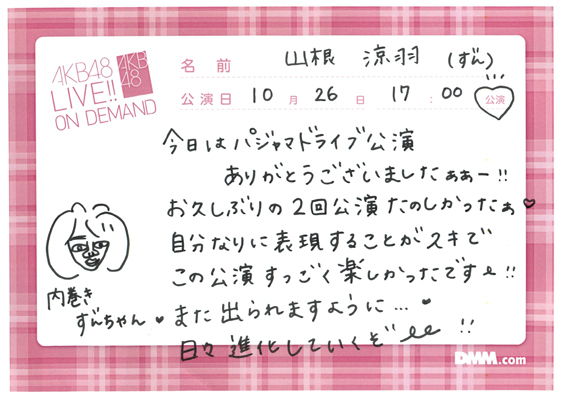 AKB48
LIVE!!
ON DEMAND
AKB
48
名前 山根 涼羽 (ずん)
公演日 10月 26日 17:00 公演
今日はパジャマドライブ公演
ありがとうございましたぁぁー!!
お久しぶりの2回公演たのしかったぁ♥
自分なりに表現することがスキで
この公演すっごく楽しかったです!!
また出られますように…♥
日々進化していくぞ!!
内巻き
ずんちゃん♥
DMM.com